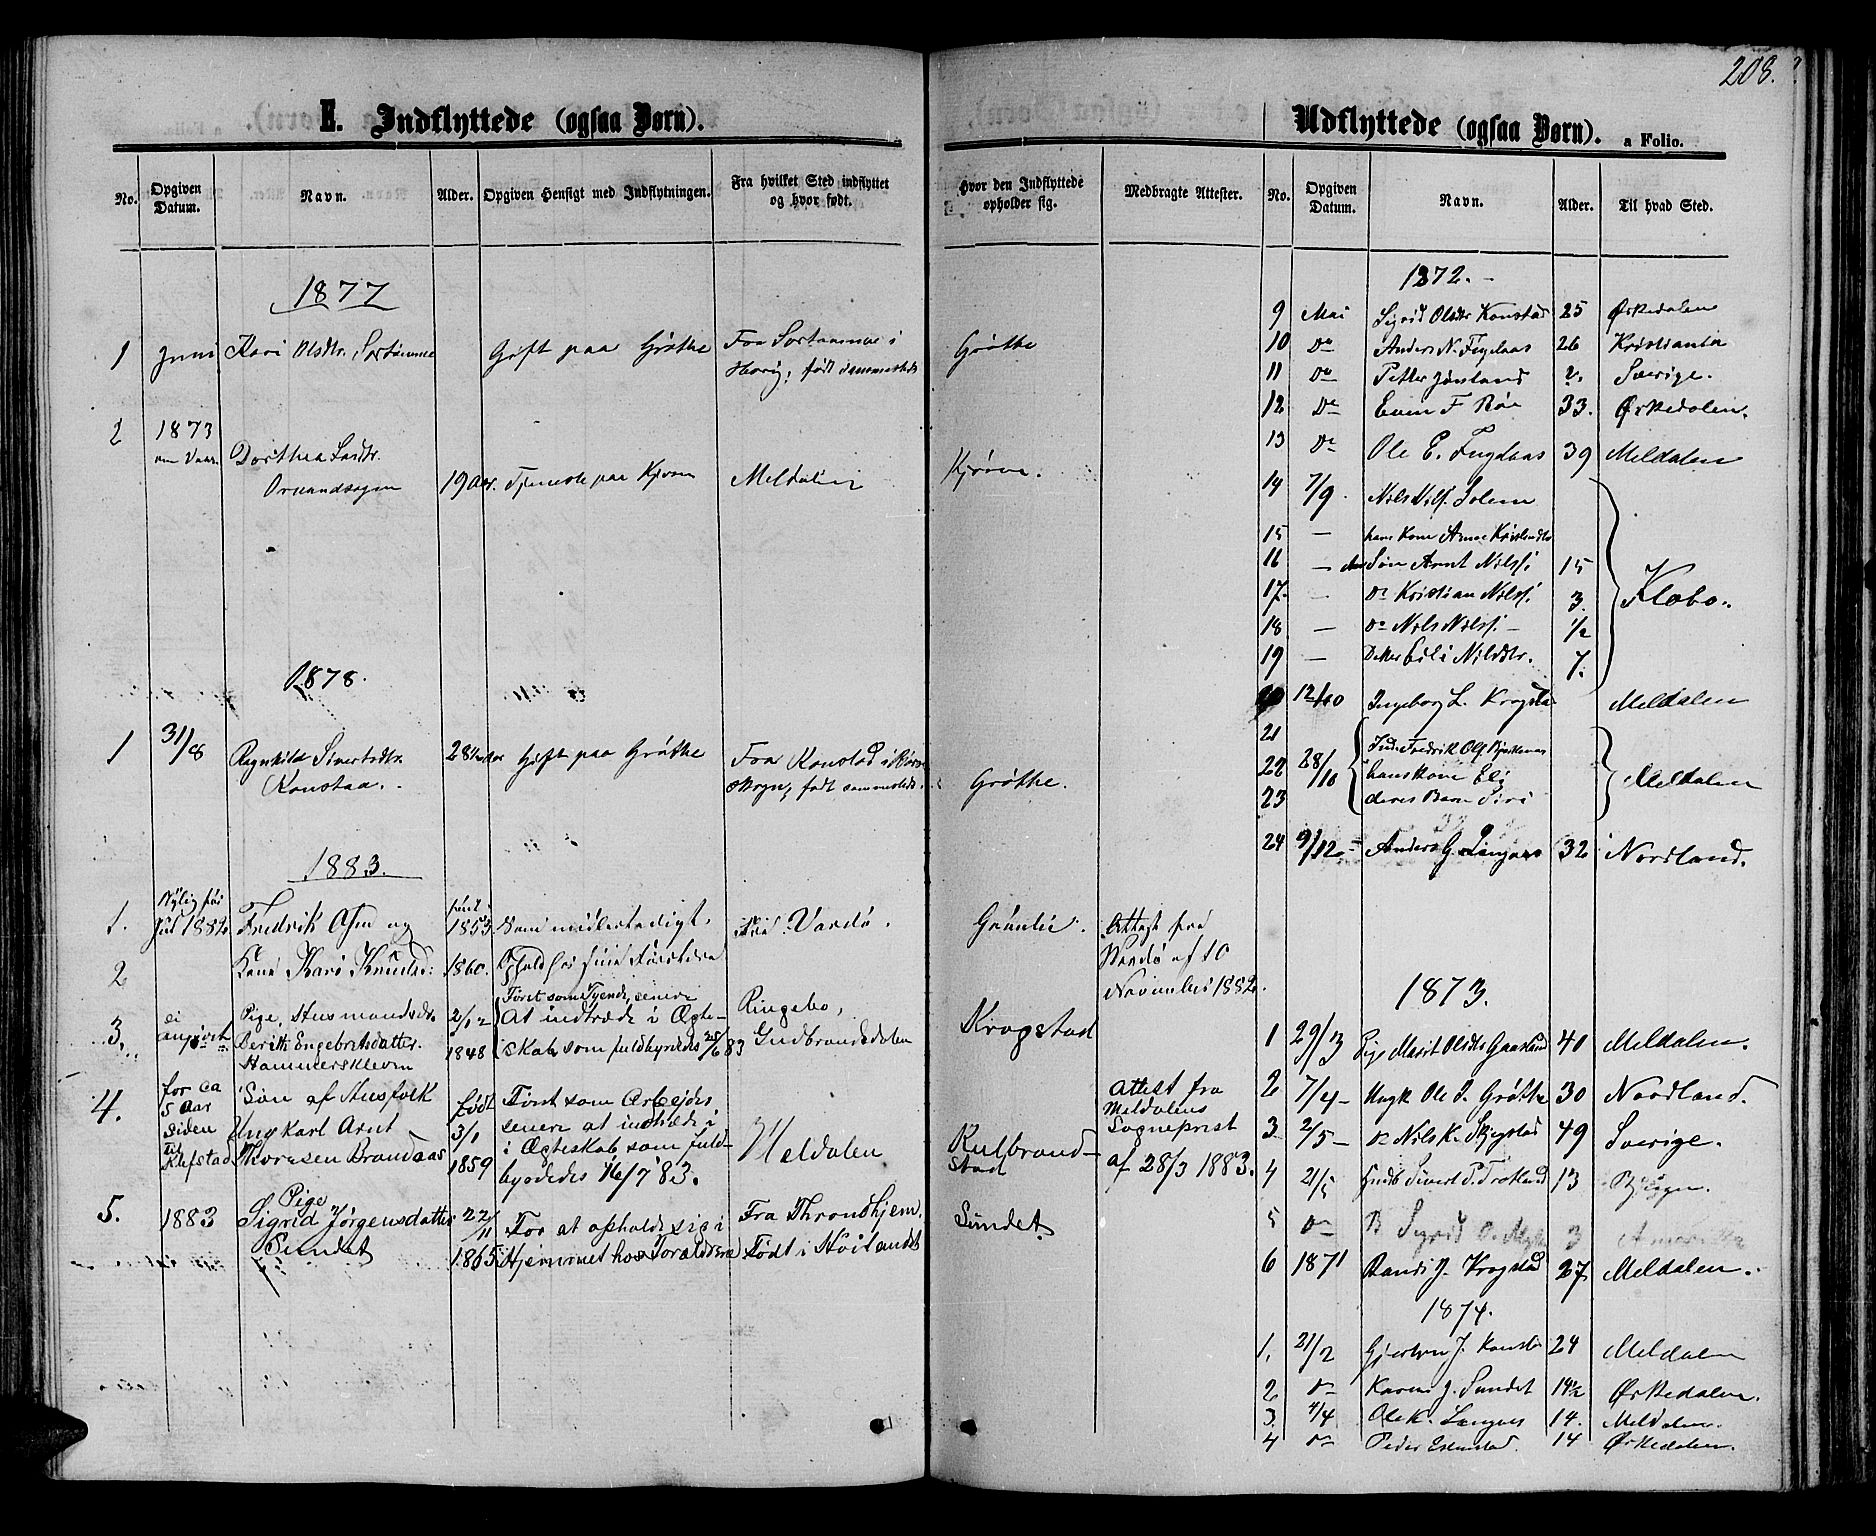 208.
E. Indflyttede (ogsaa Børn).
No.
Opgiven Datum.
Navn.
Alder.
Opgiven Hensigt med Indflytningen.
Fra hvilket Sted indflyttet og hvor født.
Hvor den Indflyttede opholder sig.
Medbragte Attester.
1877
1 Juni Kari Olsdtr. Gift paa Grøthe Fra i Grøthe
født sammesteds
2 1873
om Vaar. Dorthea Larsdtr.
19 Aar. Tjeneste paa Meldalen
1878.
1 31/8 Ragnhild Sivertsdtr. 28 1/2 Aar Gift paa Grøthe Fra Konstad i
Konstaa. født sammesteds. Grøthe.
1883.
1. Nylig før Jul 1882 Fredrik og født i 1853 Som midlertidigt Fra Vardø. Grønlie. Attest fra
2 Kone Kari 1860. Ophold hos sine Vardø af 10
November 1882.
3. ei angivet Pige, Husmandsdtr. 2/12 1848 Først som Tyende, senere
Berith Engebretsdatter At indtræde i Ægte- Ringebo, Krogstad
Hammerskleven skab, som fuldbyrdedes 25/6 83 Gudbrandsdalen
4. for ca Søn af Husfolk født Først som Arbejder Attest fra
5 Aar Ungkarl Arnt 3/1 senere at indtræde i Meldalens
siden Thoresen Brandaas 1859 i Ægteskab, som fuld- Meldalen Kulbrand- Sogneprest
til Klefstad byrdedes 16/7 83. stad af 28/3 1883.
5. 1883 Pige
Sigrid Jørgensdatter 22/11 For at opholde sig i Fra Throndhjem. Sundet
Sundet 1865 Hjemmet hos Forældrene Født i Høilandet
Udflyttede (ogsaa Børn). a Folio.
No.
Opgiven Datum.
Navn.
Alder.
Til hvad Sted.
1872.
9 Mai Sigrid Olsdtr Konstad 25 Ørkedalen
10 Do Anders N. Fugelaas 26 Kristiania
11 Do Petter Jønland Sverige.
12 Do Even F Røe 33. Ørkedalen.
13 Do Ole E. Fugelaas 39 Meldalen
14 7/9 Nils Nilss. Solem
15 — hans Kone Kristensdtr
16 — Søn Arnt Nilss. 15 Klæbo.
17. — Do Kristian Nilss. 3.
18 — Do Nils Nilss. — 1/2
19 — Datter Eli Nilsdtr. 7.
20 12/10 Ingeborg L. Krogsta Meldalen
21 Inds. Fredrik Ols.
22 28/10 hans Kone Eli Meldalen
23 deres Barn Siri
24 9/12 Anders G. Langnes 32 Nordland.
1873.
1 29/3 Pige Marit Olsdtr Gaasland 40 Meldalen.
2 7/4 — Ungk Ole I. Grøthe 30 Nordland.
3 2/5 — Do Nils K. 49 Sverige.
4 21/5 Sivert P. 13
5 Do P Sigrid O. 3 Amerika
6 1871 Randi J. Krogstad 27. Meldalen.
1874.
1. 21/2 J. Konsta 24 Meldalen
2 Do Karen J. Sundet 14 1/2 Ørkedalen.
3. 4/4 Ole K. Langnes 14. Meldalen.
4 Do Peder 14 Ørkedalen.